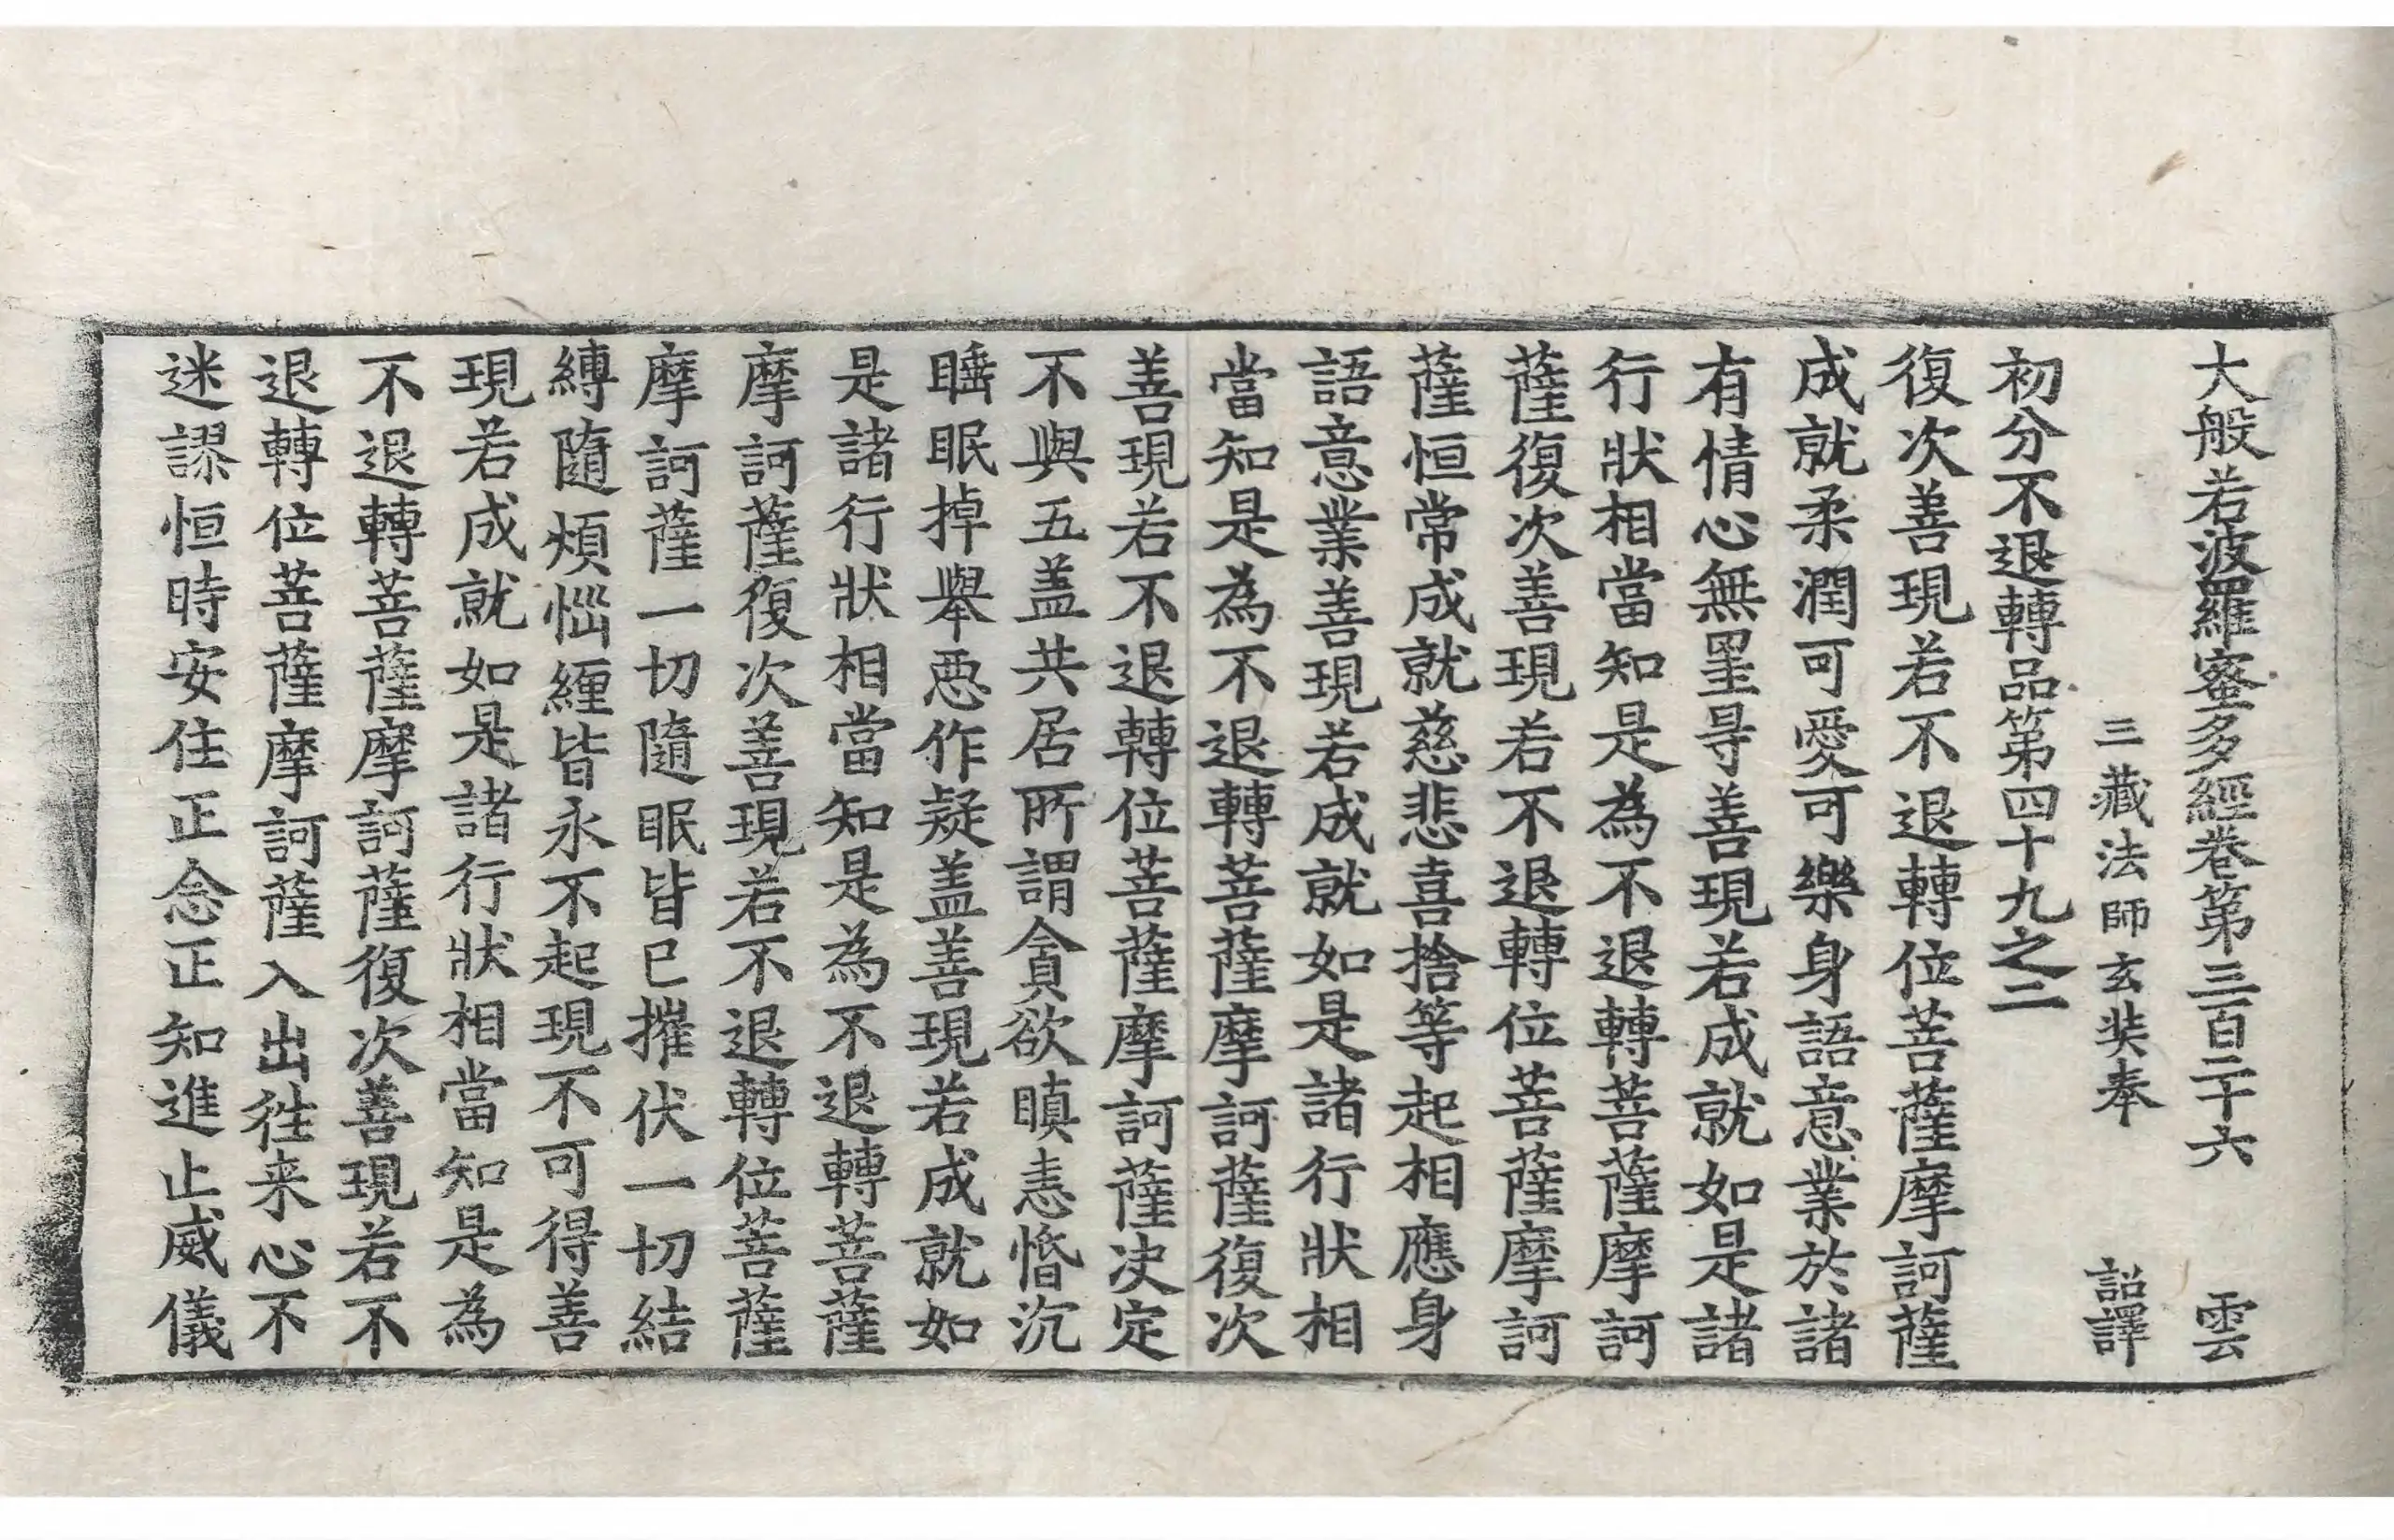 大般若波羅蜜多經卷第三百二十六 雲
三藏法師玄奘奉 詔譯
初分不退轉品第四十九之二
復次善現若不退轉位菩薩摩訶薩
成就柔潤可愛可樂身語意業於諸
有情心無罣㝵善現若成就如是諸
行狀相當知是為不退轉菩薩摩訶
薩復次善現若不退轉位菩薩摩訶
薩恒常成就慈悲喜捨等起相應身
語意業善現若成就如是諸行狀相
當知是為不退轉菩薩摩訶薩復次
善現若不退轉位菩薩摩訶薩决定
不與五盖共居所謂貪欲瞋恚惛沉
睡眠掉舉惡作疑盖善現若成就如
是諸行狀相當知是為不退轉菩薩
摩訶薩復次善現若不退轉位菩薩
摩訶薩一切隨眠皆已摧伏一切結
縛隨煩惱纏皆永不起現不可得善
現若成就如是諸行狀相當知是為
不退轉菩薩摩訶薩復次善現若不
退轉位菩薩摩訶薩入出往来心不
迷謬恒時安住正念正知進止威儀